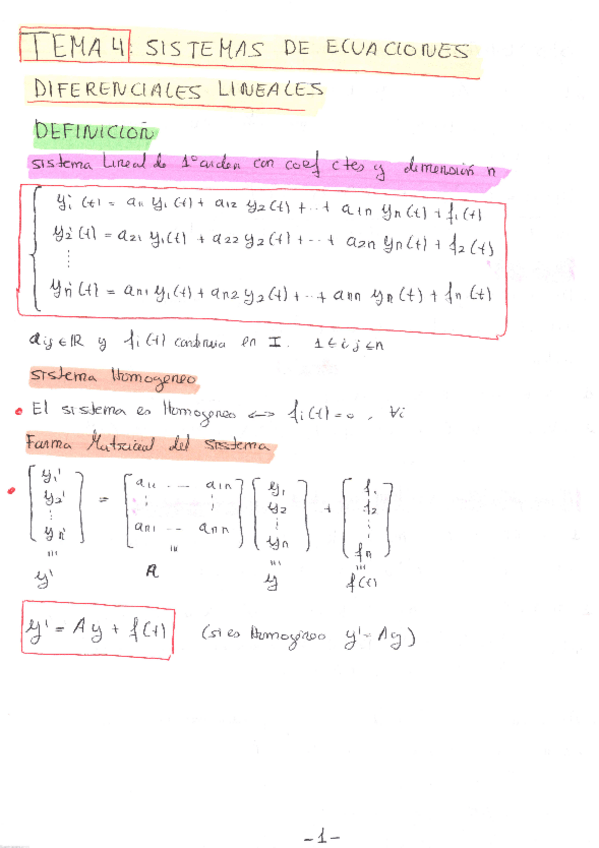 TEMA 4: SISTEMAS DE ECUACIONES
DIFERENCIALES LINEALES
DEFINICIÓN
Sistema Lineal de 1º orden con coef ctes y dimensión n
y₁'(t) = a₁₁ y₁(t) + a₁₂ y₂(t) + ··+ a₁n yn(t) + f₁(t)
y₂'(t) = a₂₁ y₁(t) + a₂₂ y₂(t) + ··+ a₂n yn(t) + f₂(t)
⋮
yn'(t) = an₁ y₁(t) + an₂ y₂(t) + ··+ ann yn(t) + fn(t)
aij ∈ ℝ y fi(t) continua en I. 1 ≤ i, j ≤ n
Sistema Homogeneo
• El sistema es Homogeneo <-> fi(t) = 0, ∀i
Forma Matricial del sistema
• [y₁' y₂' ⋮ yn'] = [a₁₁ ·-- a₁n ⋮ ⋮ an₁ -- ann] [y₁ y₂ ⋮ yn] + [f₁ f₂ ⋮ fn]
y' A y f(t)
y' = Ay + f(t) (si es Homogéneo y' = Ay)
-1-